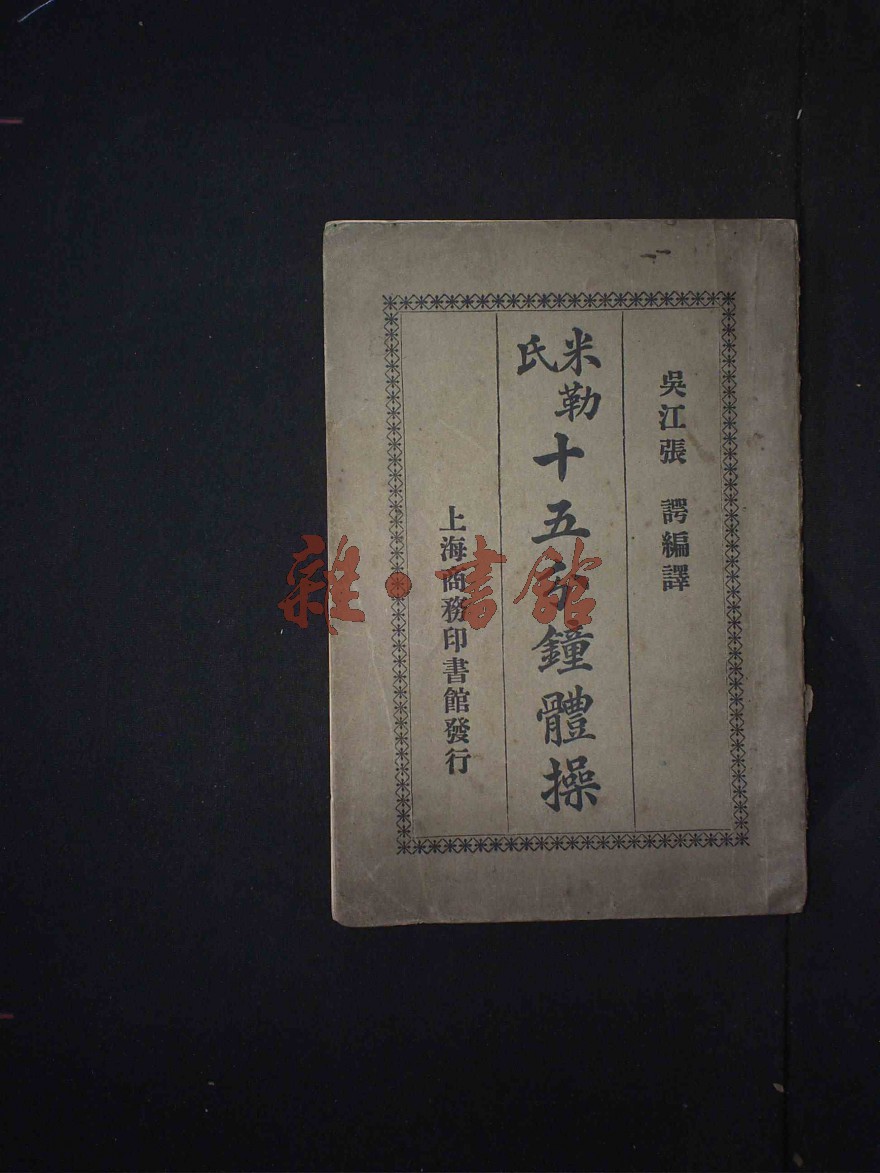 吳江張 諤編譯
米勒氏十五分鐘體操
上海商務印書館發行
雜·書館